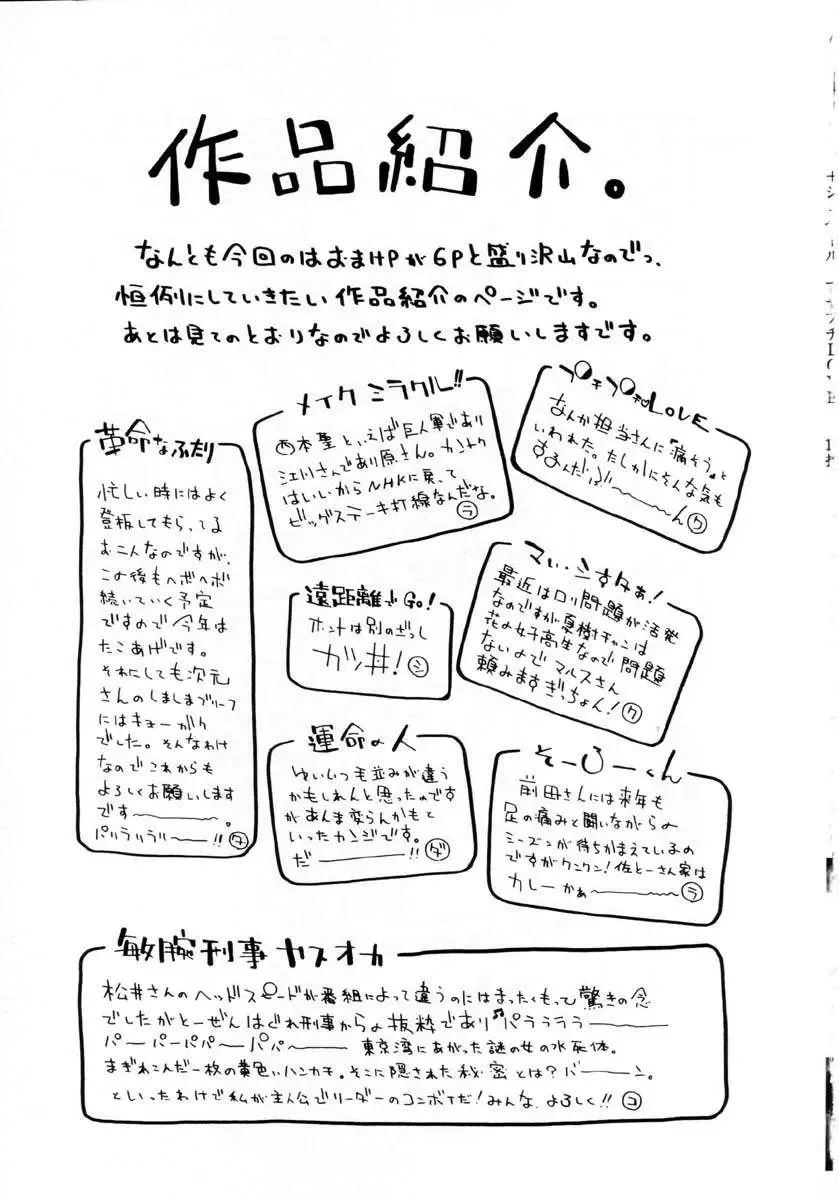 作品紹介。
なんとも今回のはおまけPが6Pと盛り沢山なのでっ、
恒例にしていきたい作品紹介のページです。
あとは見てのとおりなのでよろしくお願いしますです。
LOVE
なんか担当さんに『痛そう』と
いわれた。たしかにそんな気も
するんだぶ〜〜〜ん ク
メイク ミラクル!!
西本聖といえば巨人軍であり
江川さんであり原さん。カントク
はいいからNHKに戻って
ビッグステーキ打線なんだな。 ラ
革命なふたり
忙しい時にはよく
登板してもらってる
おこんなのですが、
この後もヘボヘボ
続いていく予定
ですので今年は
たこあげです。
それにしても次元
さんのしましまブリーフ
にはキョーガク
でした。そんなわけ
なのでこれからも
よろしくお願いします
です〜〜〜。
パリラリラリ〜〜〜!! タ
まい・しすたぁ!
最近はロリ問題が活発
なのですが夏樹チャンは
花の女子高生なので問題
ないのでマルスさん
頼みますぎっちょん! ク
遠距離でGO!
ホントは別のざっし
カツ丼! シ
運命の人
ゆいいつ毛並みが違う
かもしれんと思ったのです
があんま変らんかもと
いったカンジです。
だ〜〜〜!! ダ
そーろーくん
前田さんには来年も
足の痛みと闘いながらの
シーズンが待ちかまえているの
ですがクンクン!佐とーさん家は
カレーかぁ〜〜〜 ラ
敏腕刑事ヤスオカ
松井さんのヘッドスピードが番組によって違うのにはまったくもって驚きの念
でしたがとーぜんはぐれ刑事からの抜粋であり♫パラララ〜〜〜
パーパーパパーパパ〜〜〜 東京湾にあがった謎の女の水死体。
まぎれこんだ一枚の黄色いハンカチ。そこに隠された秘密とは?バーン。
といったわけで私が主人公でリーダーのコンボイだ!みんな、よろしく!! コ